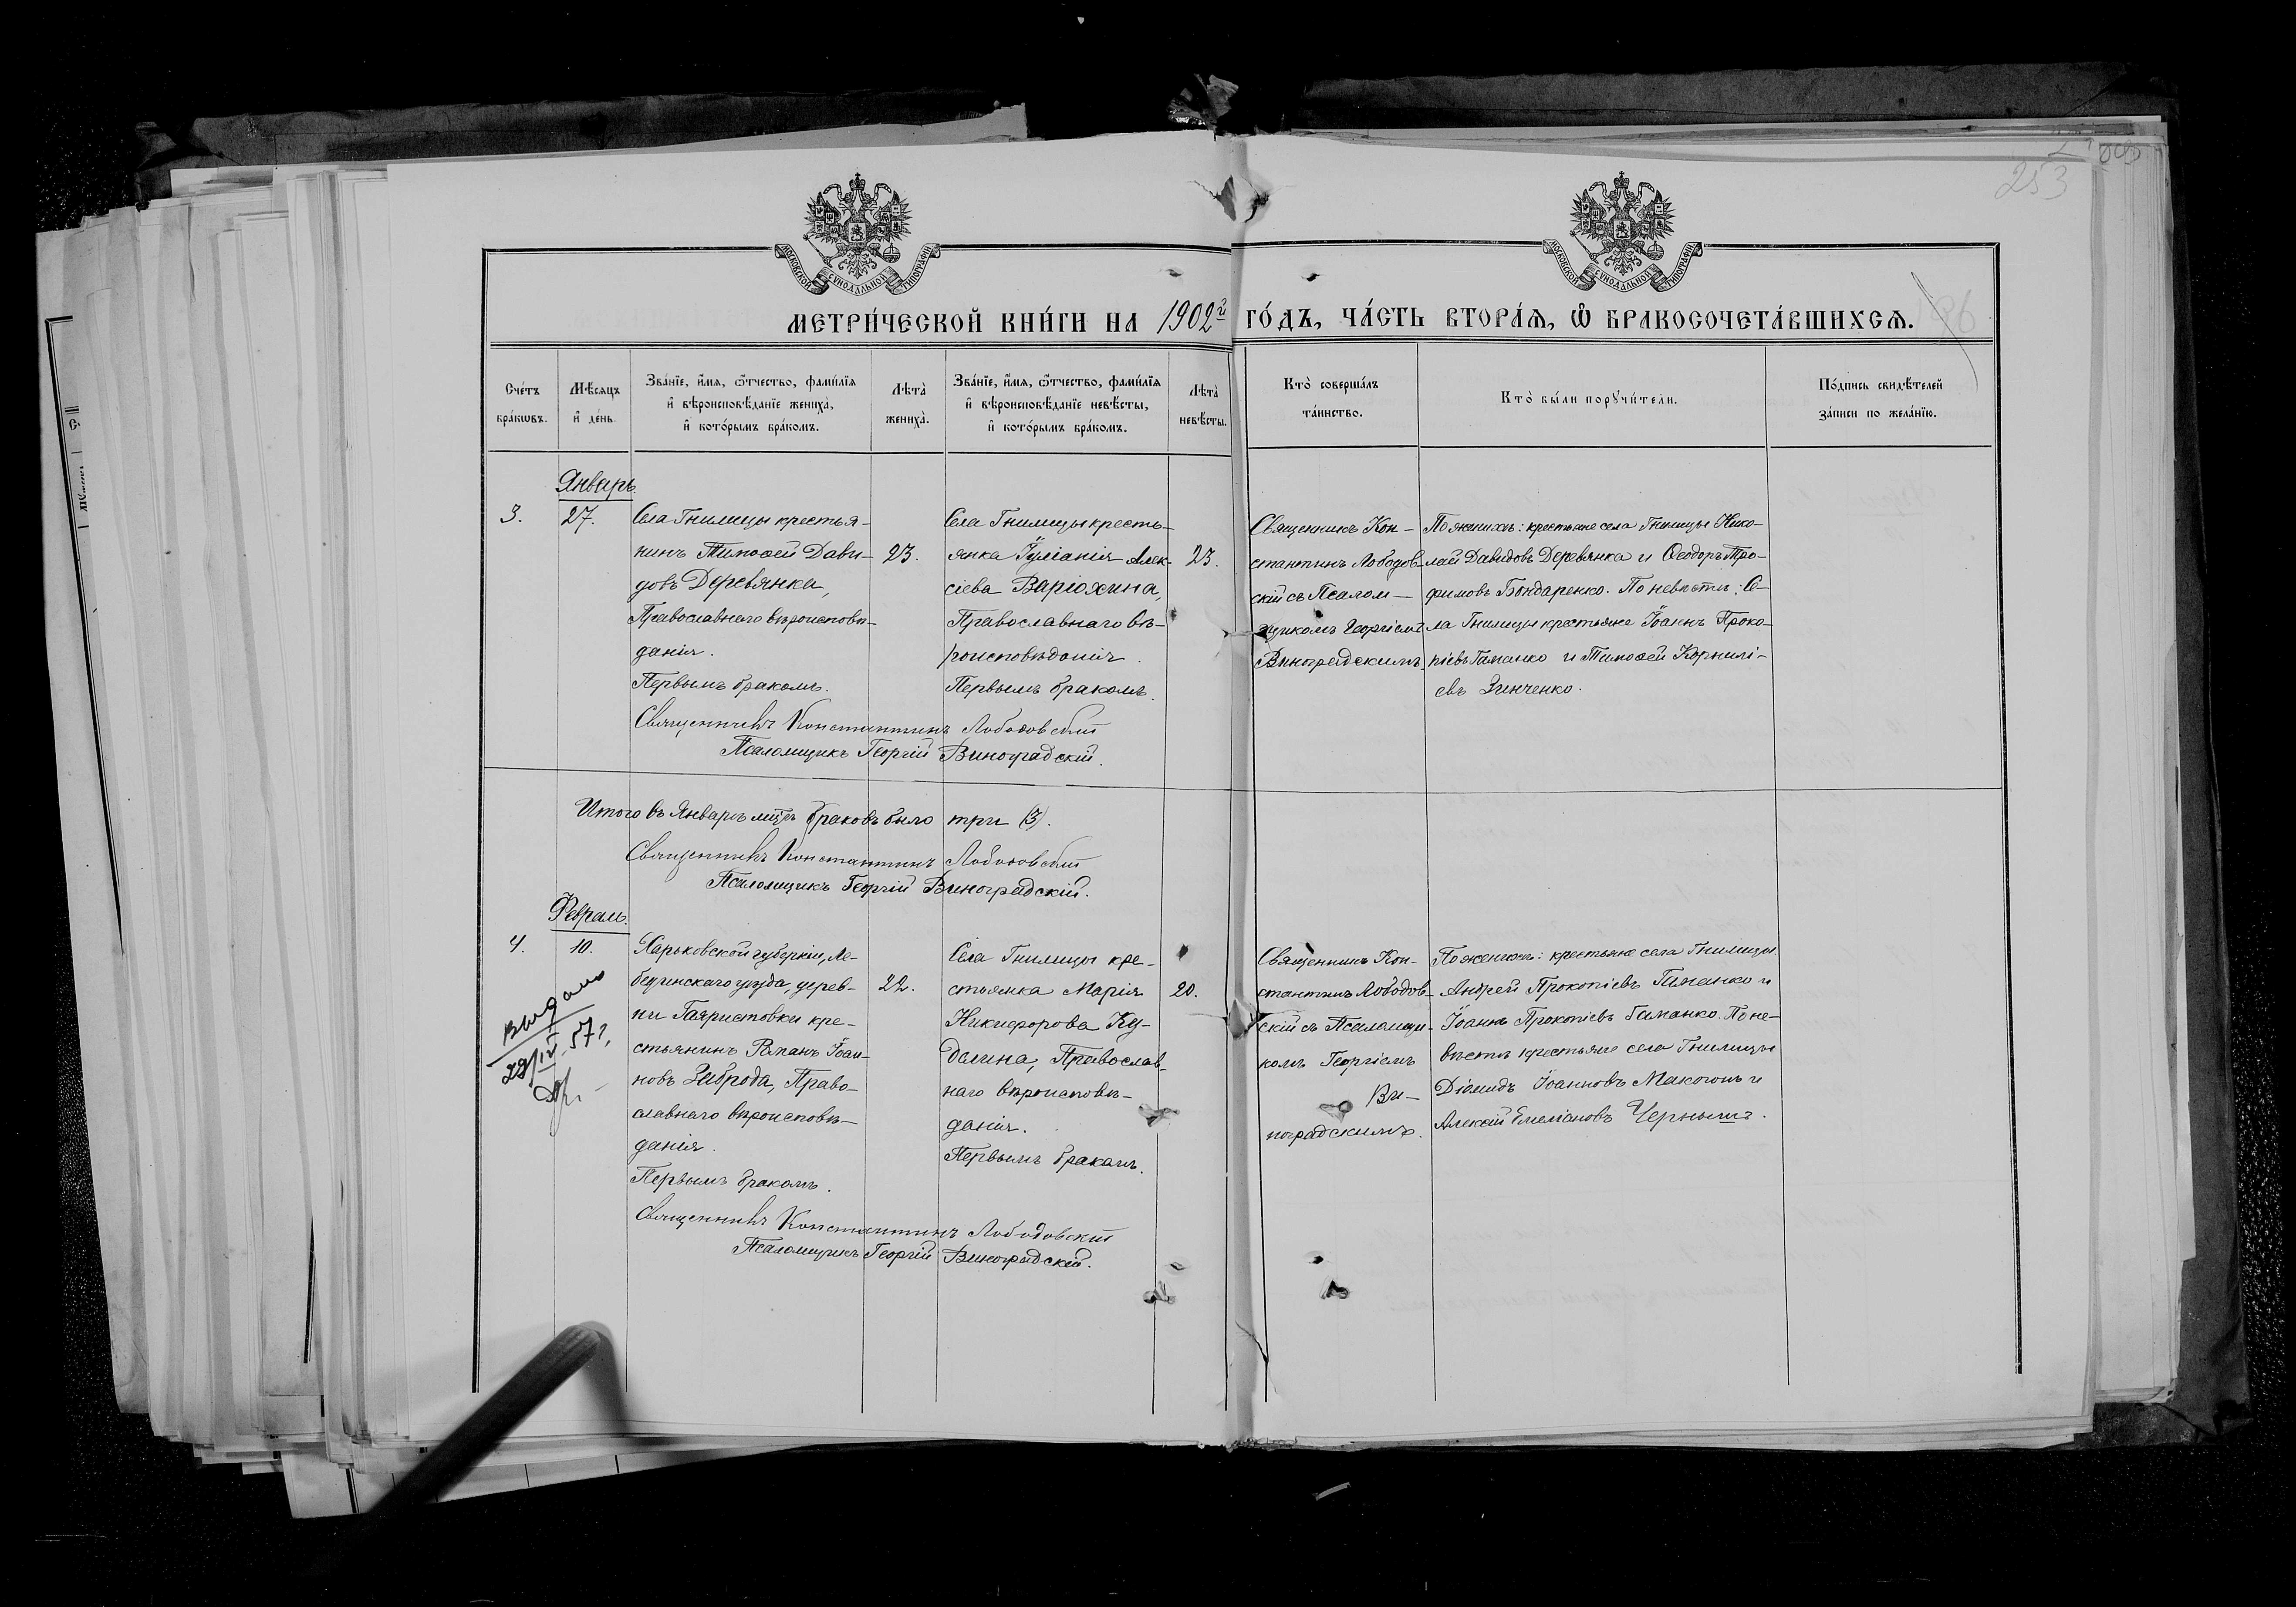 253
МОСКОВСКОЙ СѴНОДАЛЬНОЙ ТИПОГРАФІИ
МОСКОВСКОЙ СѴНОДАЛЬНОЙ ТИПОГРАФІИ
МЕТРИ́ЧЕСКОЙ КНИ́ГИ НА 1902й ГО́ДЪ, ЧА́СТЬ ВТОРА́Ѧ, Ѽ БРАКОСОЧЕТА́ВШИХСѦ.
Сче́тъ бра́кѡвъ.
Мѣ́сѧцъ и҆ де́нь.
Зва́нїе, и҆́мѧ, ѻ҆́тчество, фами́лїѧ и҆ вѣроисповѣ́данїе жениха̀, и҆ кото́рымъ бра́комъ.
Лѣта̀ жениха̀.
Зва́нїе, и҆́мѧ, ѻ҆́тчество, фами́лїѧ и҆ вѣроисповѣ́данїе невѣ́сты, и҆ кото́рымъ бра́комъ.
Лѣта̀ невѣ́сты.
Кто̀ соверша́лъ та́инство.
Кто̀ бы́ли порꙋчи́тели.
По́дпись свидѣ́телей за́писи по жела́нїю.
Январь.
3.
27.
Села Гнилицы крестья-
нинъ Тимоѳей Дави-
довъ Деревянка,
Православнаго вѣроисповѣ-
данія.
Первымъ бракомъ.
23.
Села Гнилицы кресть-
янка Іуліанія Алек-
сіева Варіохина,
Православнаго вѣ-
роисповѣданія.
Первымъ бракомъ.
23.
Священникъ Кон-
стантинъ Лободов-
скій съ Псалом-
щикомъ Георгіемъ
Виноградскимъ
По женихѣ: крестьяне села Гнилицы Нико-
лай Давидовъ Деревянка и Ѳеодоръ Тро-
фимовъ Бондаренко. По невѣстѣ: Се-
ла Гнилицы крестьяне Іоаннъ Проко-
піевъ Гаманко и Тимоѳей Корнилі-
евъ Зинченко.
Священникъ Константинъ Лободовскій
Псаломщикъ Георгій Виноградскій.
Итого въ Январѣ мцѣ браковъ было три (3).
Священникъ Константинъ Лободовскій
Псаломщикъ Георгій Виноградскій.
Февраль.
4.
10.
Выдано
29/IV.57г.
Харьковской губерніи, Ле-
бединскаго уѣзда, дерев-
ни Гаяристовки кре-
стьянинъ Романъ Іоан-
новъ Заброда, Право-
славнаго вѣроисповѣ-
данія.
Первымъ бракомъ.
22.
Села Гнилицы кре-
стьянка Марія
Никифорова Ку-
долина, Православ-
наго вѣроисповѣ-
данія.
Первымъ бракомъ.
20.
Священникъ Кон-
стантинъ Лободов-
скій съ Псаломщи-
комъ Георгіемъ
Ви-
ноградскимъ.
По женихѣ: крестьяне села Гнилицы
Андрей Прокопіевъ Гаманко и
Іоаннъ Прокопіевъ Гаманко. По не-
вѣстѣ крестьяне села Гнилицы
Діомидъ Іоанновъ Макогонъ и
Алексій Емеліановъ Чернышъ.
Священникъ Константинъ Лободовскій
Псаломщикъ Георгій Виноградскій.